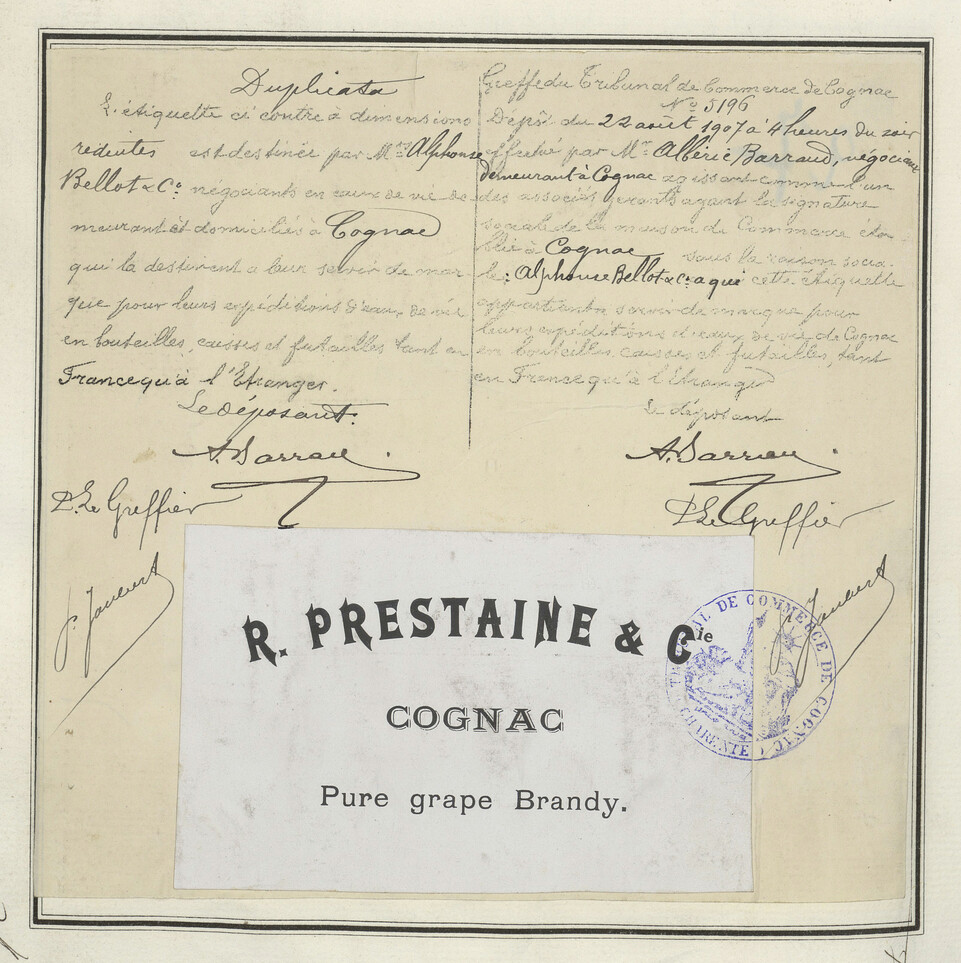 Duplicata
L'étiquette ci contre à dimensions
réduites est destinée par Mrs Alphonse
Bellot & Co. négociants en eaux de vie de
meurant et domiciliés à Cognac
qui la destinent a leur servir de mar-
que pour leurs expéditions d'eaux de vie
en bouteilles, caisses et futailles tant en
France qu'à l'Etranger.
Le déposant.
A. Barraud
P. Le Greffier
P. Jaubert
Greffe du Tribunal de Commerce de Cognac
No 5196
Dépôt du 22 août 1907 à 4 heures du soir
effectué par Mr Albéric Barraud, négociant
demeurant à Cognac agissant comme l'un
des associés gérants ayant la signature
sociale de la maison de Commerce éta-
blie à Cognac sous la raison socia-
le: Alphonse Bellot & Co a qui cette étiquette
appartient servir de marque pour
leurs expéditions d'eaux de vie de Cognac
en bouteilles, caisses et futailles, tant
en France qu'à l'Etranger
Le déposant
A. Barraud
P. Le Greffier
Jaubert
R. PRESTAINE & Cie
COGNAC
Pure grape Brandy.
TRIBUNAL DE COMMERCE DE COGNAC
CHARENTE